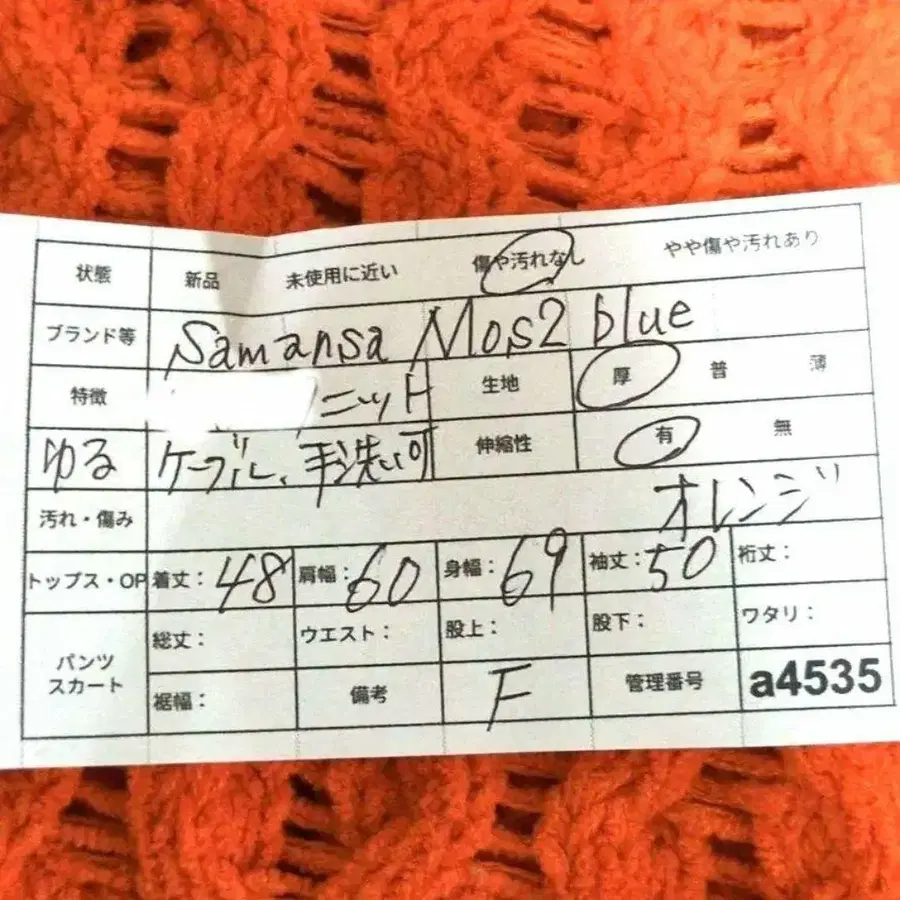 状態 新品 未使用に近い 傷や汚れなし やや傷や汚れあり
ブランド等 Samansa Mos2 blue
特徴 ニット 生地 厚 普 薄
ゆる ケーブル、手洗い可 伸縮性 有 無
汚れ・傷み オレンジ
トップス・OP 着丈：48 肩幅：60 身幅：69 袖丈：50 裄丈：
パンツ スカート 総丈： ウエスト： 股上： 股下： ワタリ：
裾幅： 備考 F 管理番号 a4535